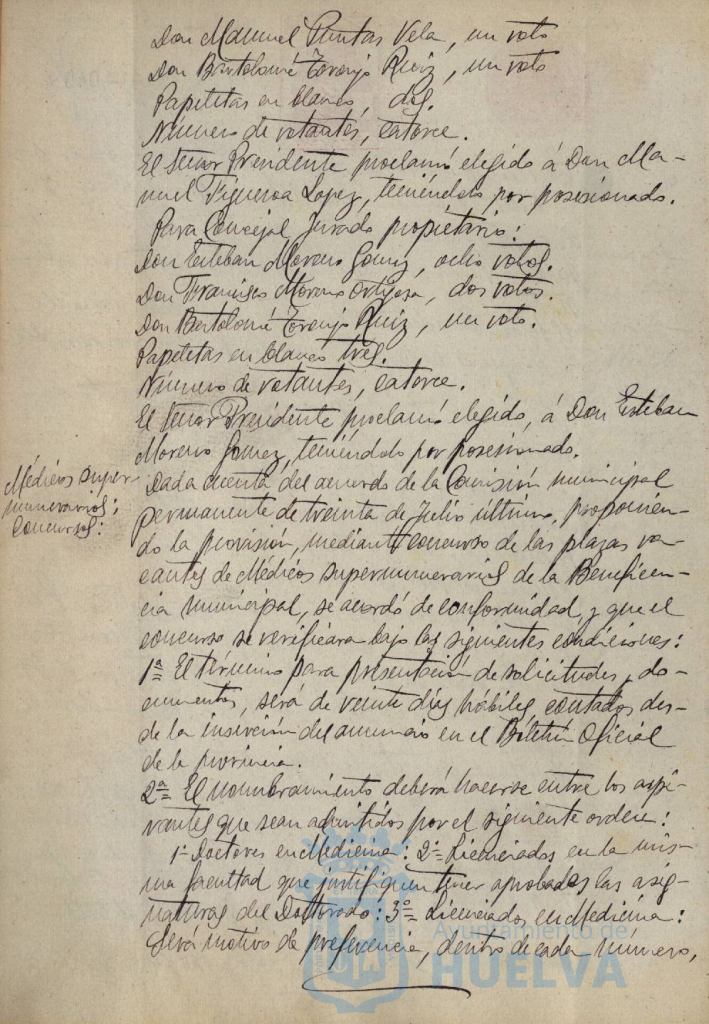 Don Manuel Puntas Vela, un voto
Don Bartolomé Toronjo Ruiz, un voto
Papeletas en blanco, dos.
Número de votantes, catorce.
El Señor Presidente proclamó elegido á Don Ma-
nuel Figueroa Lopez, teniéndolo por posesionado.
Para Concejal Jurado propietario:
Don Esteban Moreno Gomez, ocho votos.
Don Francisco Moreno Ortigosa, dos votos.
Don Bartolomé Toronjo Ruiz, un voto.
Papeletas en blanco tres.
Número de votantes, catorce.
El Señor Presidente proclamó elegido, á Don Esteban
Moreno Gomez, teniéndolo por posesionado.
Médicos super-
numerarios:
Concurso:
Dada cuenta del acuerdo de la Comisión municipal
permanente de treinta de Julio último, proponien-
do la provisión, mediante concurso de las plazas va-
cantes de Médicos supernumerarios de la Beneficen-
cia municipal, se acordó de conformidad, y que el
concurso se verificara bajo las siguientes condiciones:
1ª El término para presentación de solicitudes, do-
cumentos, será de veinte días hábiles contados des-
de la inserción del anuncio en el Boletín Oficial
de la provincia.
2ª El nombramiento deberá hacerse entre los aspi-
rantes que sean admitidos por el siguiente orden:
1º Doctores en Medicina: 2º Licenciados en la mis-
ma facultad que justifiquen tener aprobadas las asig-
naturas del Doctorado: 3º Licenciados en Medicina:
Será motivo de preferencia, dentro de cada número,
Ayuntamiento de
HUELVA